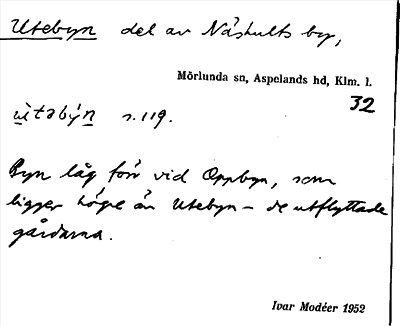 Utebyn del av Näshults by,
Mörlunda sn, Aspelands hd, Klm. l.
32
ùtabýn s. 119.
Byn låg förr vid Oppbyn, som
ligger högre än Utebyn – de utflyttade
gårdarna.
Ivar Modéer 1952